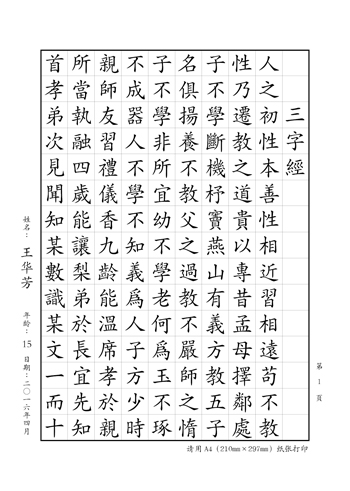 三字經
人之初性本善性相近習相遠苟不教
性乃遷教之道貴以專昔孟母擇鄰處
子不學斷機杼竇燕山有義方教五子
名俱揚養不教父之過教不嚴師之惰
子不學非所宜幼不學老何爲玉不琢
不成器人不學不知義爲人子方少時
親師友習禮儀香九齡能溫席孝於親
所當執融四歲能讓梨弟於長宜先知
首孝弟次見聞知某數識某文一而十
姓名：王华芳 年龄：15 日期：二〇一六年四月
第 1 頁
请用A4（210mm×297mm）纸张打印